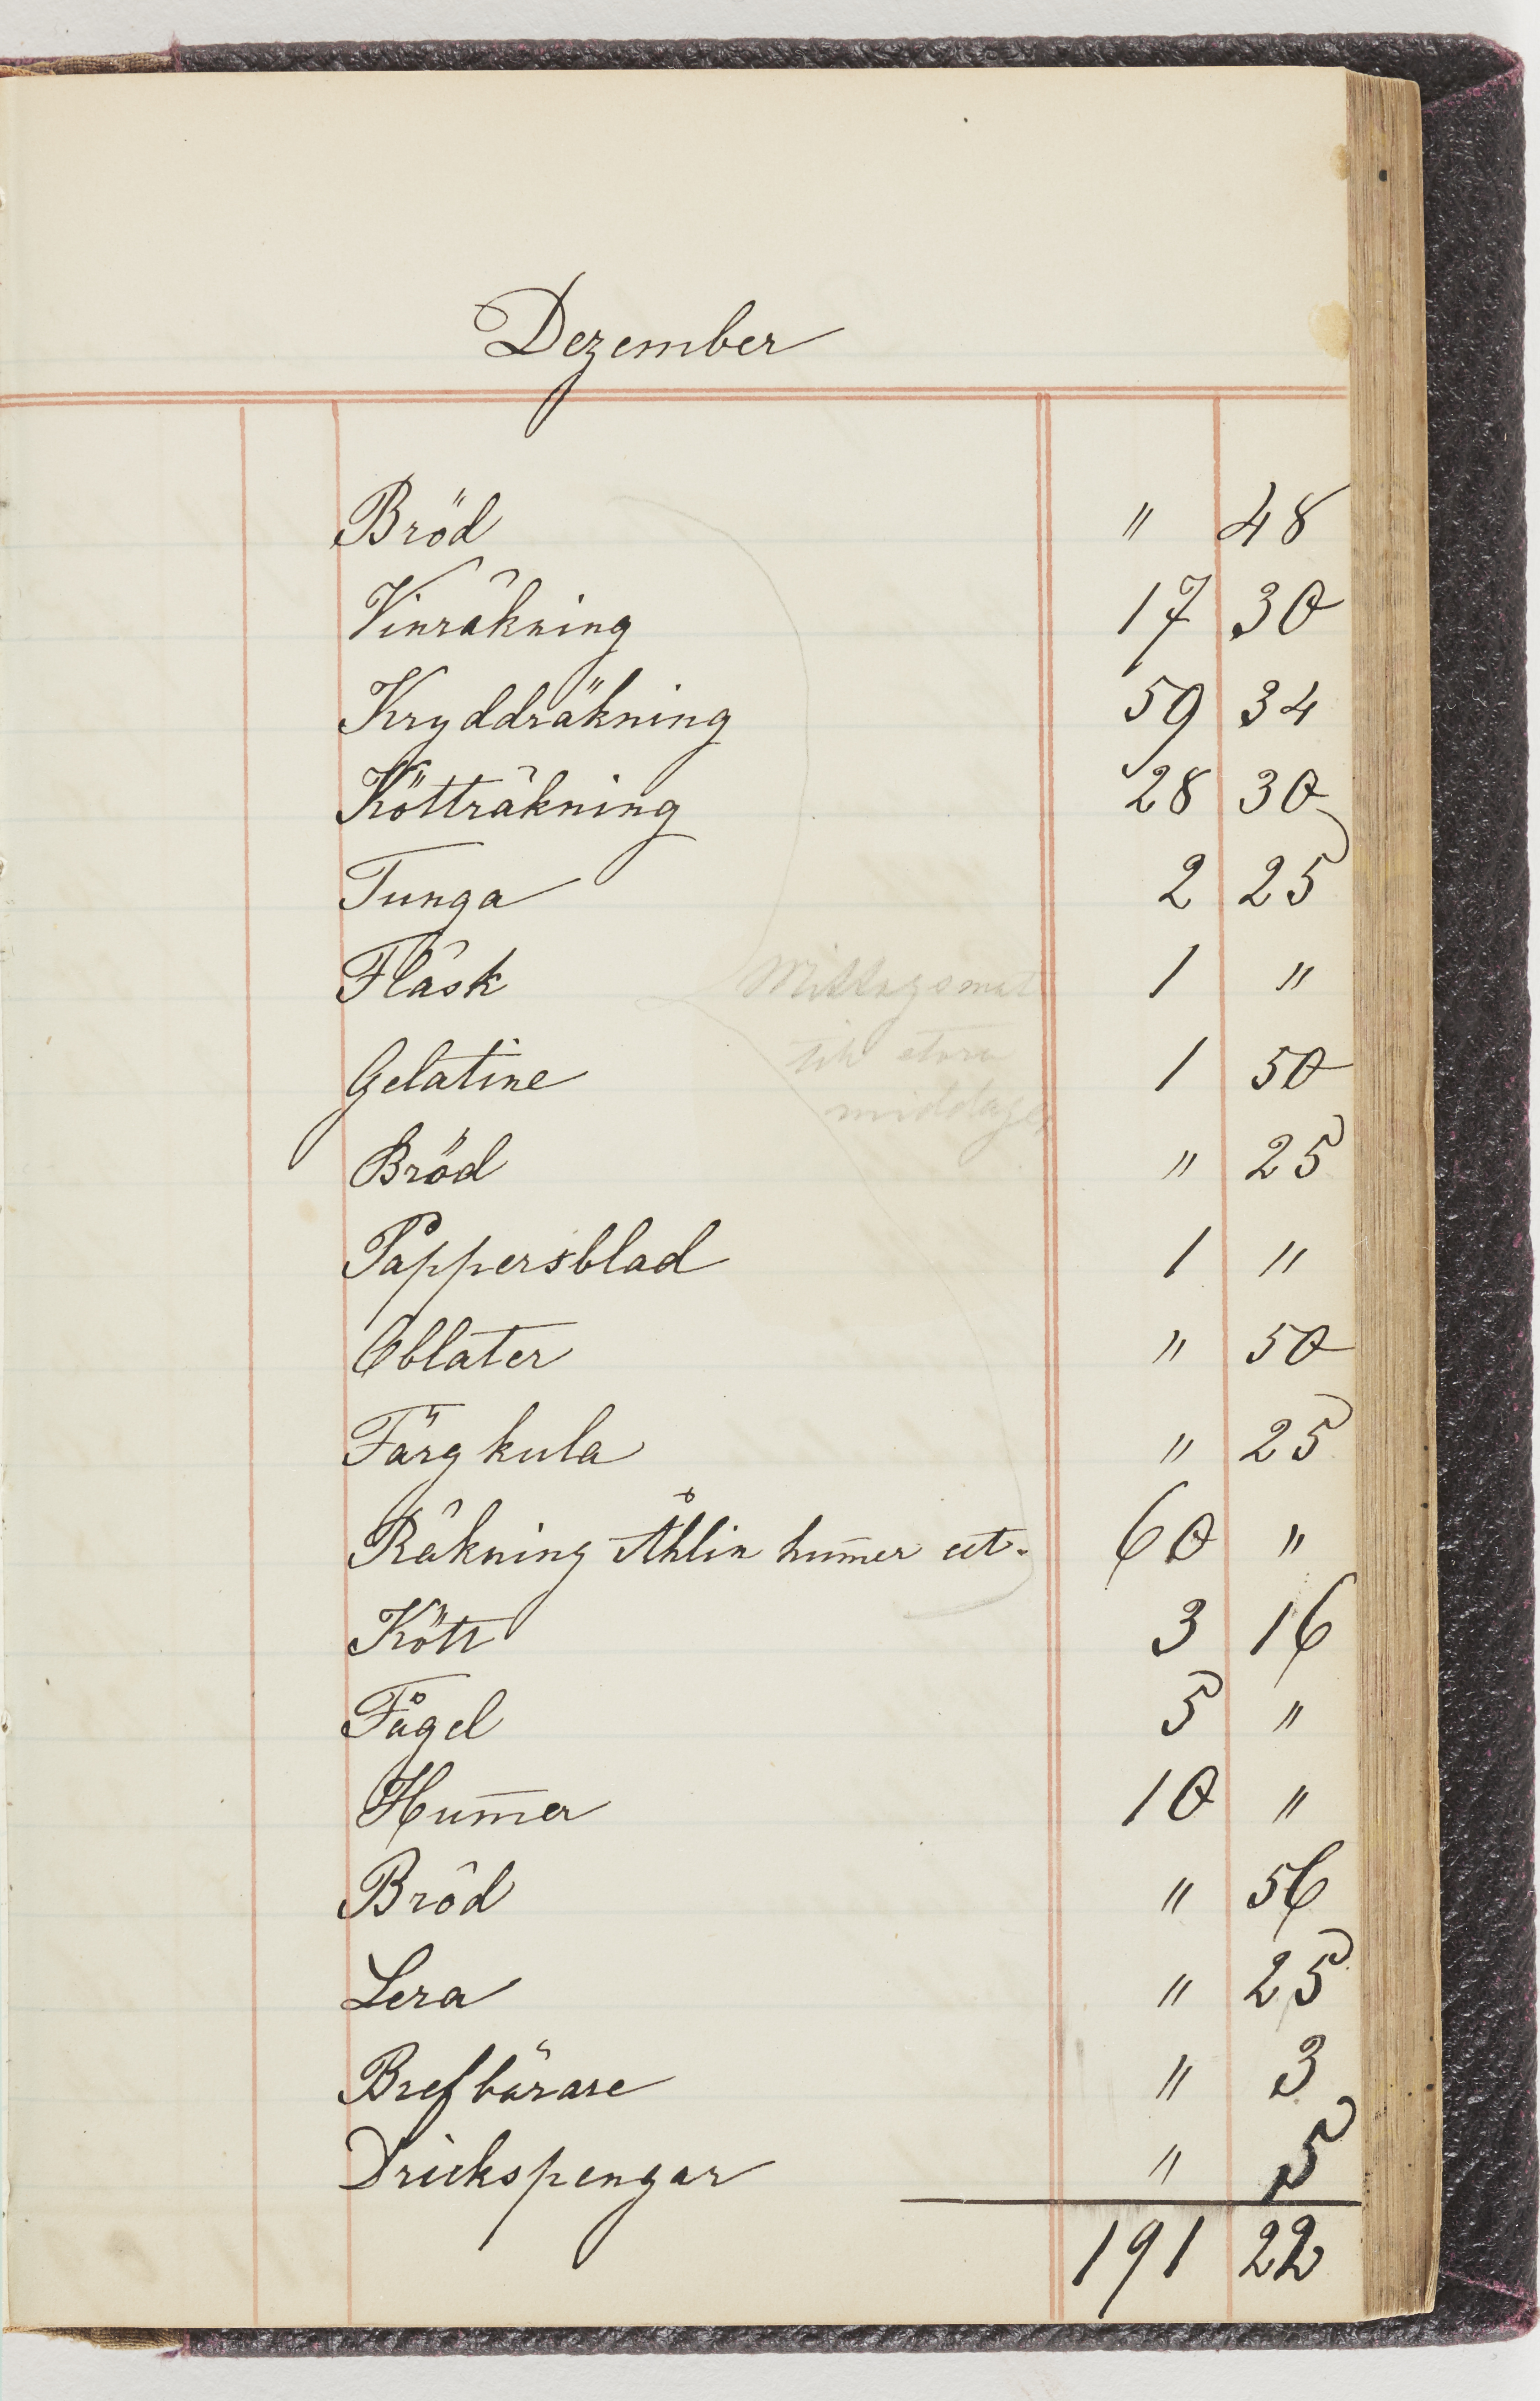 Dezember
Bröd " 48
Vinräkning 17 30
Kryddräkning 59 34
Kötträkning 28 30
Tunga 2 25
Fläsk 1 "
Mittagsmat
Gelatine 1 50
till stora
middagen
Bröd " 25
Pappersblad 1 "
Oblater " 50
Färgkula " 25
Räkning Åhlin hum̄er et. 60 "
Kött 3 16
Fågel 5 "
Hum̄er 10 "
Bröd " 56
Lera " 25
Brefbärare " 3
Drickspengar " 5
191 22